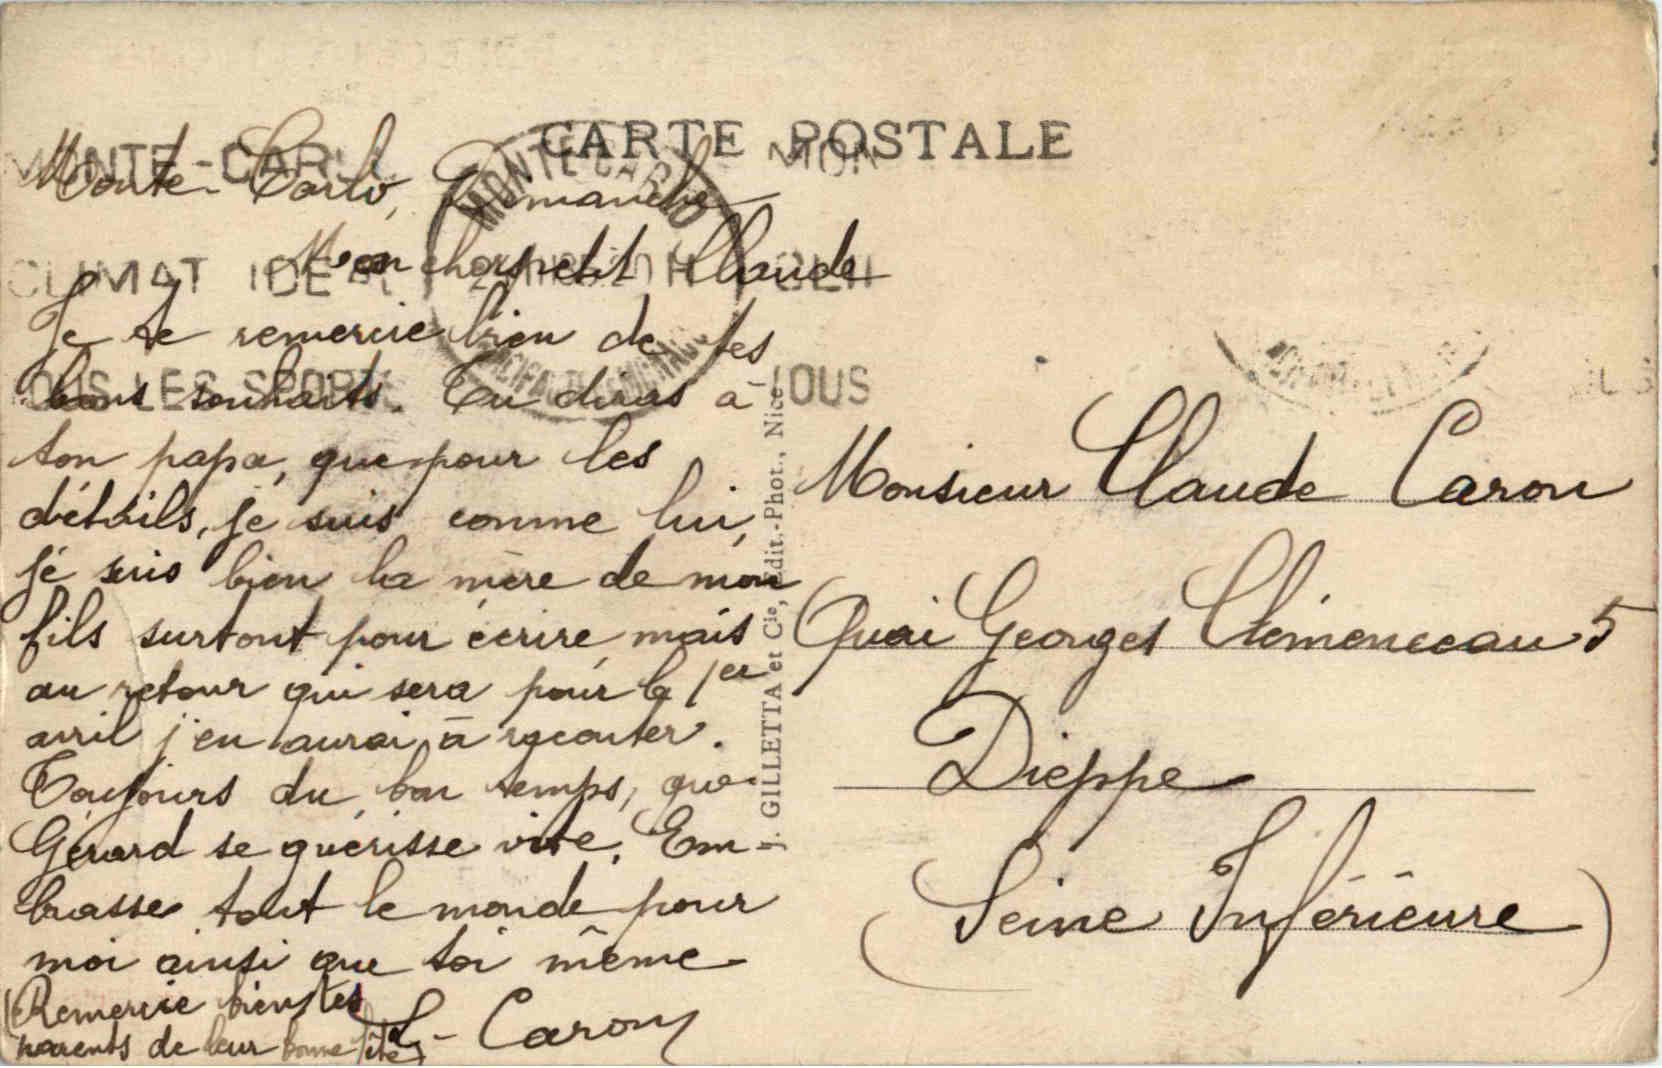 CARTE POSTALE
MONTE-CARLO
MONTE-CARLO
MON
CLIMAT IDÉAL
TOUS LES SPORTS
TOUS
Monte-Carlo, Dimanche
Mon cher petit Claude
Je te remercie bien de tes
bons souhaits. Tu diras à
ton papa, que pour les
détails, je suis comme lui,
je suis bien la mère de mon
fils surtout pour écrire, mais
au retour qui sera pour le 1er
avril j'en aurai à raconter.
Toujours du bon temps, que
Gérard se guérisse vite. Em-
brasse tout le monde pour
moi ainsi que toi même
L. Caron
(Remercie bien tes
parents de leur bonne fête)
J. GILLETTA et Cie, Édit.-Phot., Nice
Monsieur Claude Caron
Quai Georges Clémenceau 5
Dieppe
(Seine Inférieure)